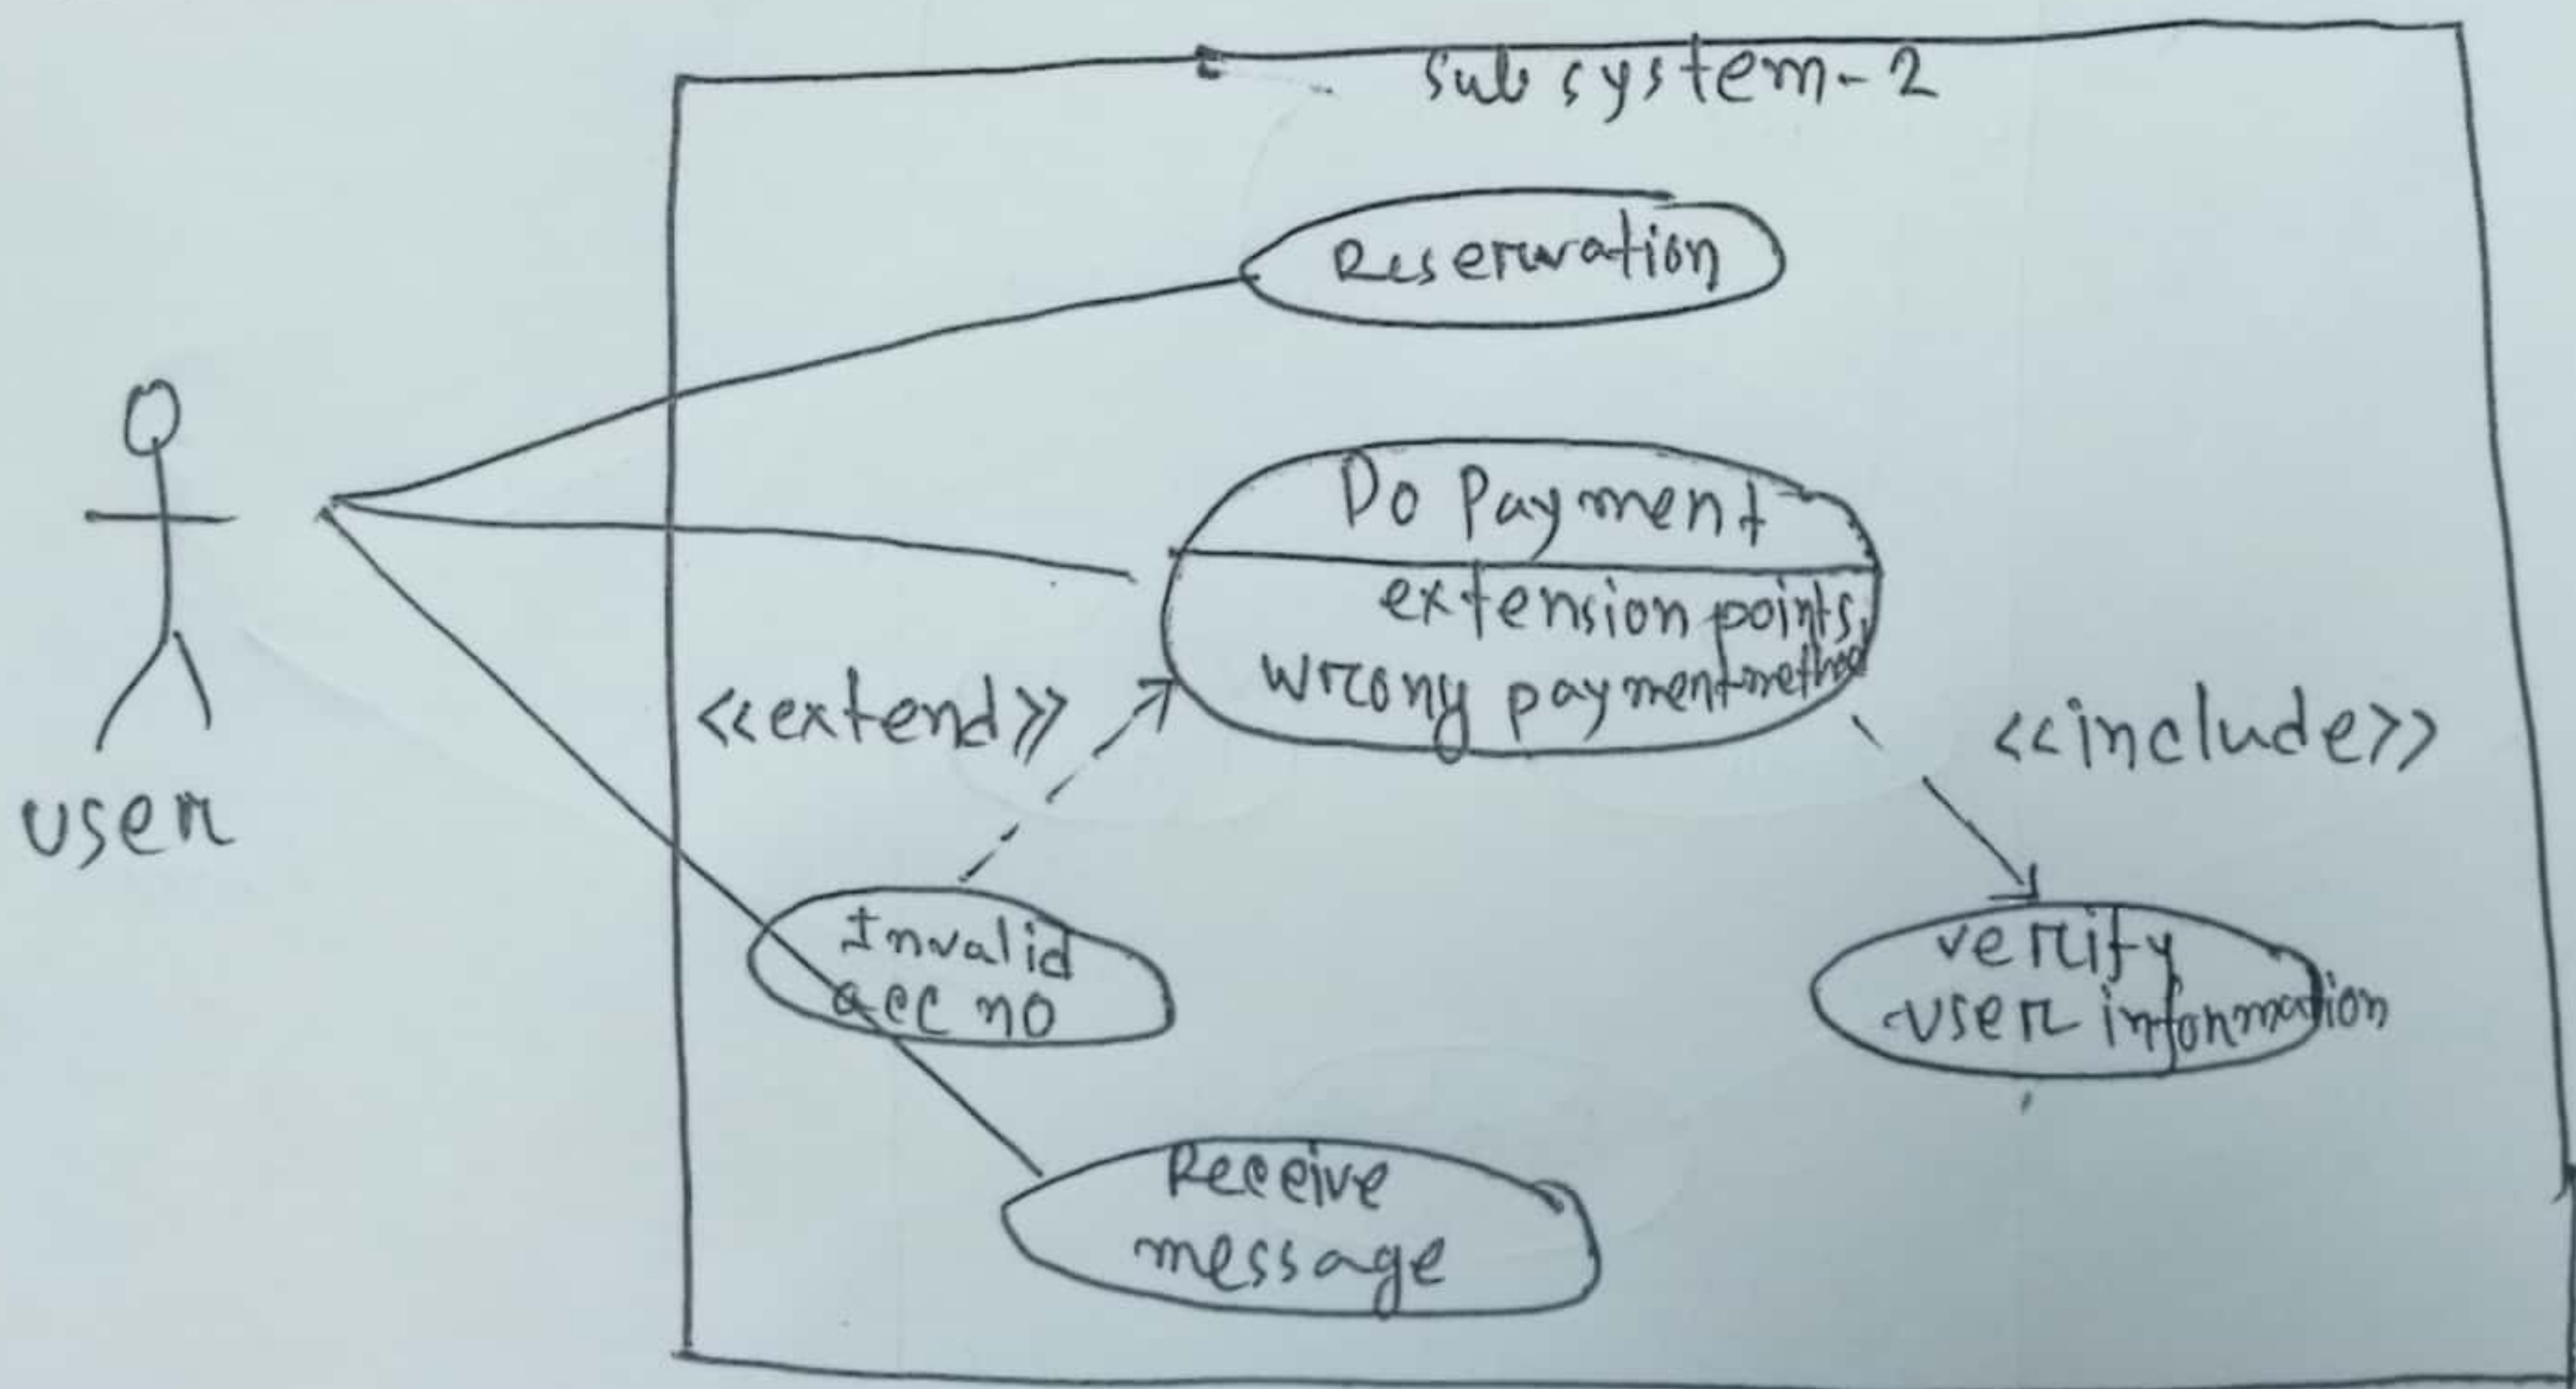 subsystem-2
Reservation
Do Payment
extension points,
wrong payment method
<<extend>>
<<include>>
user
Invalid
acc no
verify
user information
Receive
message